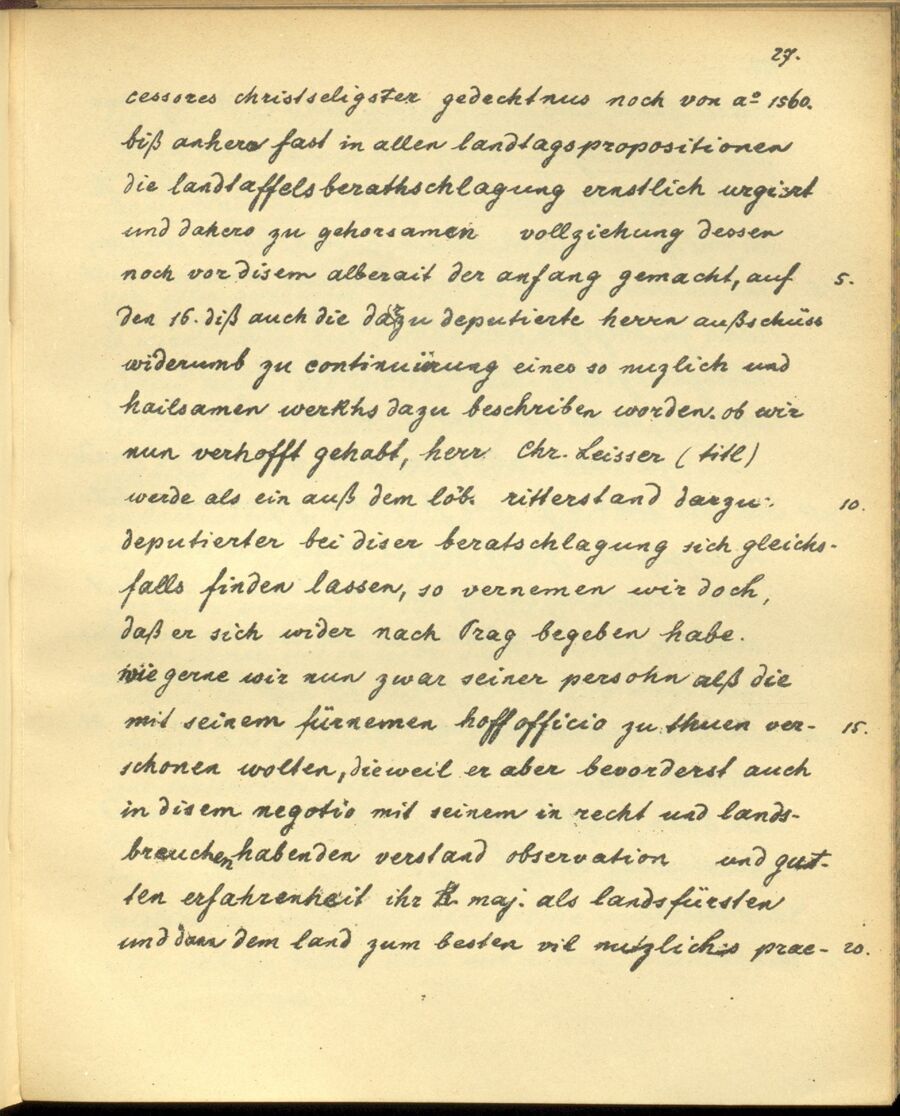 27.
cessores christseligster gedechtnus noch von aº 1560.
biß anhero fast in allen landtagspropositionen
die landtaffelsberathschlagung ernstlich urgiert
und dahero zu gehorsamen vollziehung dessen
noch vor disem alberait der anfang gemacht, auf 5.
den 16. diß auch die darzu deputierte herrn außschüss
widerumb zu continuierung eines so nuzlich und
hailsamen werkhs dazu beschriben worden. ob wir
nun verhofft gehabt, herr Chr. Leisser (titl)
werde als ein auß dem löb. ritterstand darzu 10.
deputierter bei diser beratschlagung sich gleichs-
falls finden lassen, so vernemen wir doch,
daß er sich wider nach Prag begeben habe.
wie gerne wir nun zwar seiner persohn alß die
mit seinem fürnemen hoffofficio zu thuen ver- 15.
schonen wolten, dieweil er aber bevorderst auch
in disem negotio mit seinem in recht und lands-
breuchen habenden verstand observation und gut-
ten erfahrenheit ihr k. maj. als landsfürsten
und dann dem land zum besten vil nutzliches prae- 20.